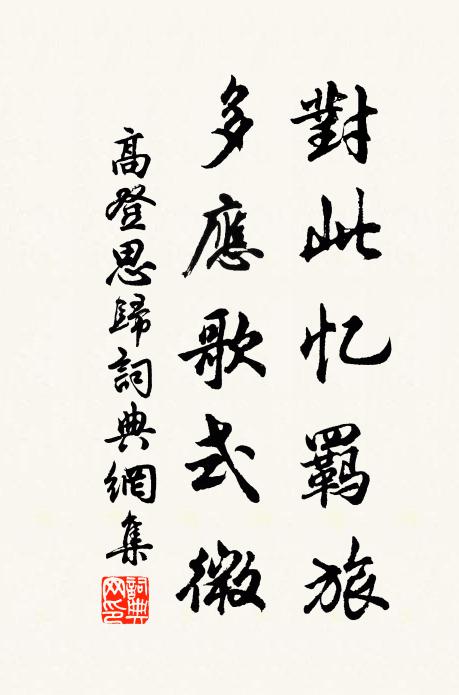 對此忆羈旅
多應歌式微
高登思歸詞典網集
詞典網印